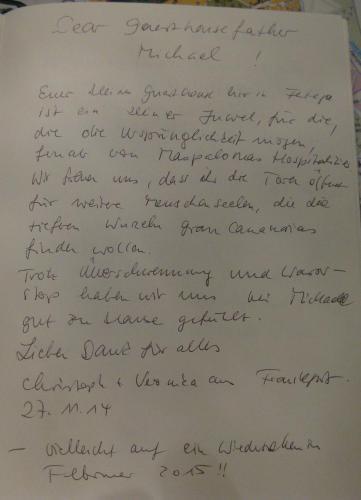 Dear guesthousefather
Michael !
Euer kleines Guesthouse hier in Fataga
ist ein kleiner Juwel, für die,
die die Ursprünglichkeit mögen,
fernab von Maspalomas
Wir freuen uns, dass ihr die Toren öffnet
für weitere Menschenseelen, die die
tiefen Wurzeln Gran Canarias
finden wollen.
Trotz Überschwemmung und
haben wir uns bei Michael
gut zu Hause gefühlt.
Lieben Dank für alles
Christoph + Veronica aus Frankfurt.
27.11.14
– vielleicht auf ein Wiedersehen im
Februar 2015 !!